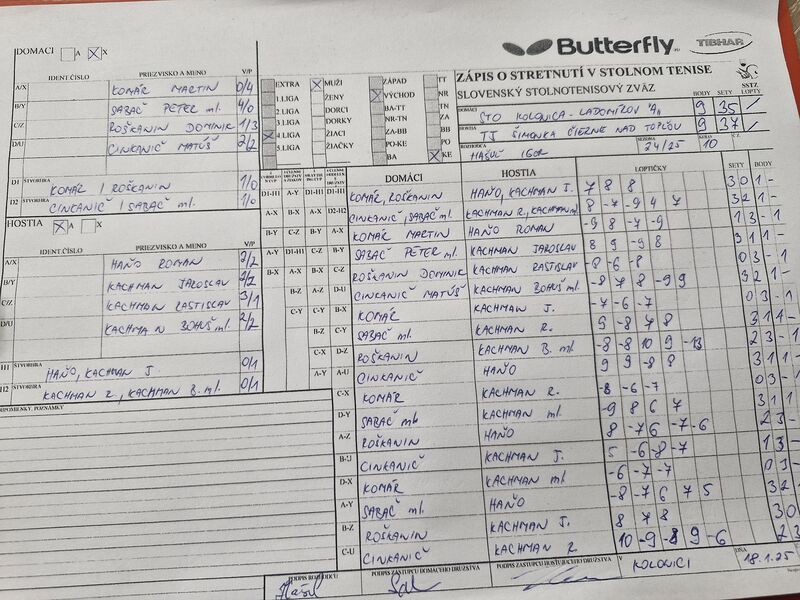 Butterfly
TIBHAR
DOMÁCI A X X
IDENT.ČÍSLO PRIEZVISKO A MENO V/P
A/X KOMÁR MARTIN 0/4
B/Y SABAČ PETER ml. 4/0
C/Z ROŠKANIN DOMINIK 1/3
D/U CINKANIČ MATÚŠ 2/2
D1 ŠTVORHRA KOMÁR / ROŠKANIN 1/0
D2 ŠTVORHRA CINKANIČ / SABAČ ml. 1/0
HOSTIA X A X
IDENT.ČÍSLO PRIEZVISKO A MENO V/P
A/X HAŇO ROMAN 2/2
B/Y KACHMAN JAROSLAV 2/2
C/Z KACHMAN RASTISLAV 3/1
D/U KACHMAN BOHUŠ ml. 2/2
H1 ŠTVORHRA HAŇO, KACHMAN J. 0/1
H2 ŠTVORHRA KACHMAN R., KACHMAN B. ml. 0/1
PRIPOMIENKY, POZNÁMKY
EXTRA X MUŽI ZÁPAD TT
1.LIGA ŽENY X VÝCHOD NR
2.LIGA DORCI BA-TT TN
3.LIGA DORKY NR-TN ZA
4.LIGA ŽIACI ZA-BB BB
5.LIGA ŽIAČKY PO-KE PO
BA X KE
ZÁPIS O STRETNUTÍ V STOLNOM TENISE
SLOVENSKÝ STOLNOTENISOVÝ ZVÄZ
BODY SETY LOPTY
DOMÁCI STO KOLONICA-LADOMÍROV "A" 9 35 /
HOSTIA TJ ŠIMONKA ČIERNE NAD TOPĽOU 9 37 /
ROZHODCA HAŠUĽ IGOR SEZÓNA 24/25 KOLO 10
DOMÁCI HOSTIA LOPTIČKY SETY BODY
D1-H1 A-Y D1-H1 D1-H1 KOMÁR, ROŠKANIN HAŇO, KACHMAN J. 7 8 8 3 0 1 -
A-X B-X A-X D2-H2 CINKANIČ, SABAČ ml. KACHMAN R., KACHMAN ml. 8 -7 -9 4 7 3 2 1 -
B-Y C-Z B-Y A-X KOMÁR MARTIN HAŇO ROMAN -9 8 -7 -9 1 3 - 1
A-Y D1-H1 C-Z B-Y SABAČ PETER ml. KACHMAN JAROSLAV 8 9 -9 8 3 1 1 -
B-X A-X B-X C-Z ROŠKANIN DOMINIK KACHMAN RASTISLAV -8 -6 -8 0 3 - 1
B-Z A-Z D-U CINKANIČ MATÚŠ KACHMAN BOHUŠ ml. -8 7 8 -9 9 3 2 1 -
C-Y C-Y B-X KOMÁR KACHMAN J. -7 -6 -7 0 3 - 1
B-Z C-Y SABAČ ml. KACHMAN R. 9 -8 7 8 3 1 1 -
C-X D-Z ROŠKANIN KACHMAN B. ml. -8 -8 10 9 -13 2 3 - 1
A-Y A-U CINKANIČ HAŇO 9 9 -8 8 3 1 1 -
C-X KOMÁR KACHMAN R. -8 -6 -7 0 3 - 1
D-Y SABAČ ml. KACHMAN ml. -9 8 6 7 3 1 1
A-Z ROŠKANIN HAŇO 8 -7 6 -7 -6 2 3 -
B-U CINKANIČ KACHMAN J. 5 -6 -8 -7 1 3 -
D-X KOMÁR KACHMAN ml. -6 -7 -7 0 3
A-Y SABAČ ml. HAŇO -8 -7 6 7 5 3 2
B-Z ROŠKANIN KACHMAN J. 8 7 8 3 0
C-U CINKANIČ KACHMAN R 10 -9 -8 9 -6 2 3
PODPIS ROZHODCU PODPIS ZÁSTUPCU DOMÁCEHO DRUŽSTVA PODPIS ZÁSTUPCU HOSŤUJÚCEHO DRUŽSTVA V KOLONICI DŇA 18.1.25